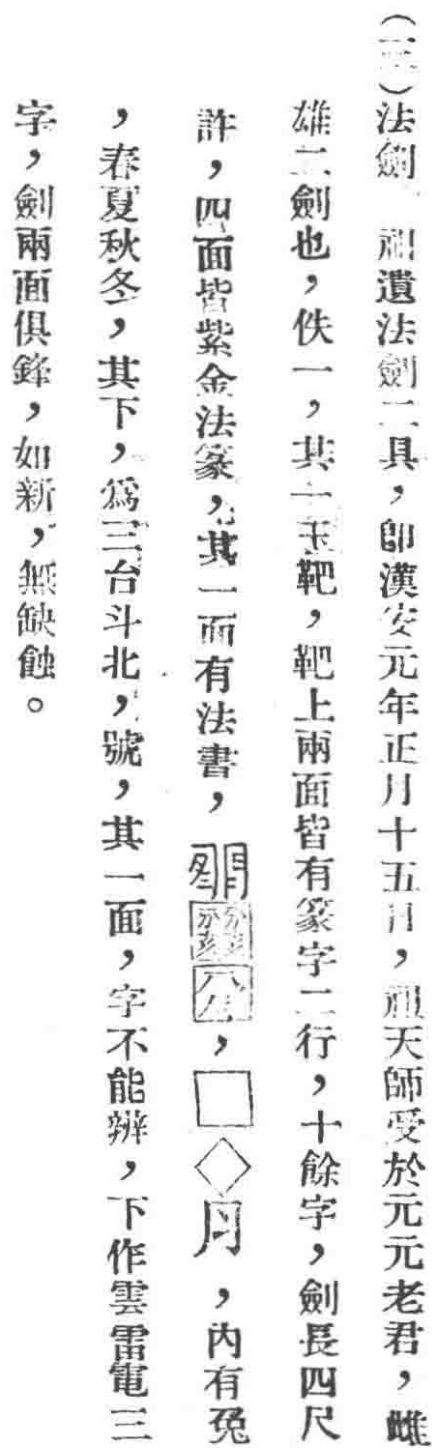 (三)法劍 祖遺法劍二具，卽漢安元年正月十五日，祖天師受於元元老君，雌
雄二劍也，佚一，其一玉靶，靶上兩面皆有篆字二行，十餘字，劍長四尺
許，四面皆紫金法篆，其一面有法書，，□◇月，內有兔
，春夏秋冬，其下，爲三台斗北，號，其一面，字不能辨，下作雲雷電三
字，劍兩面俱鋒，如新，無缺蝕。